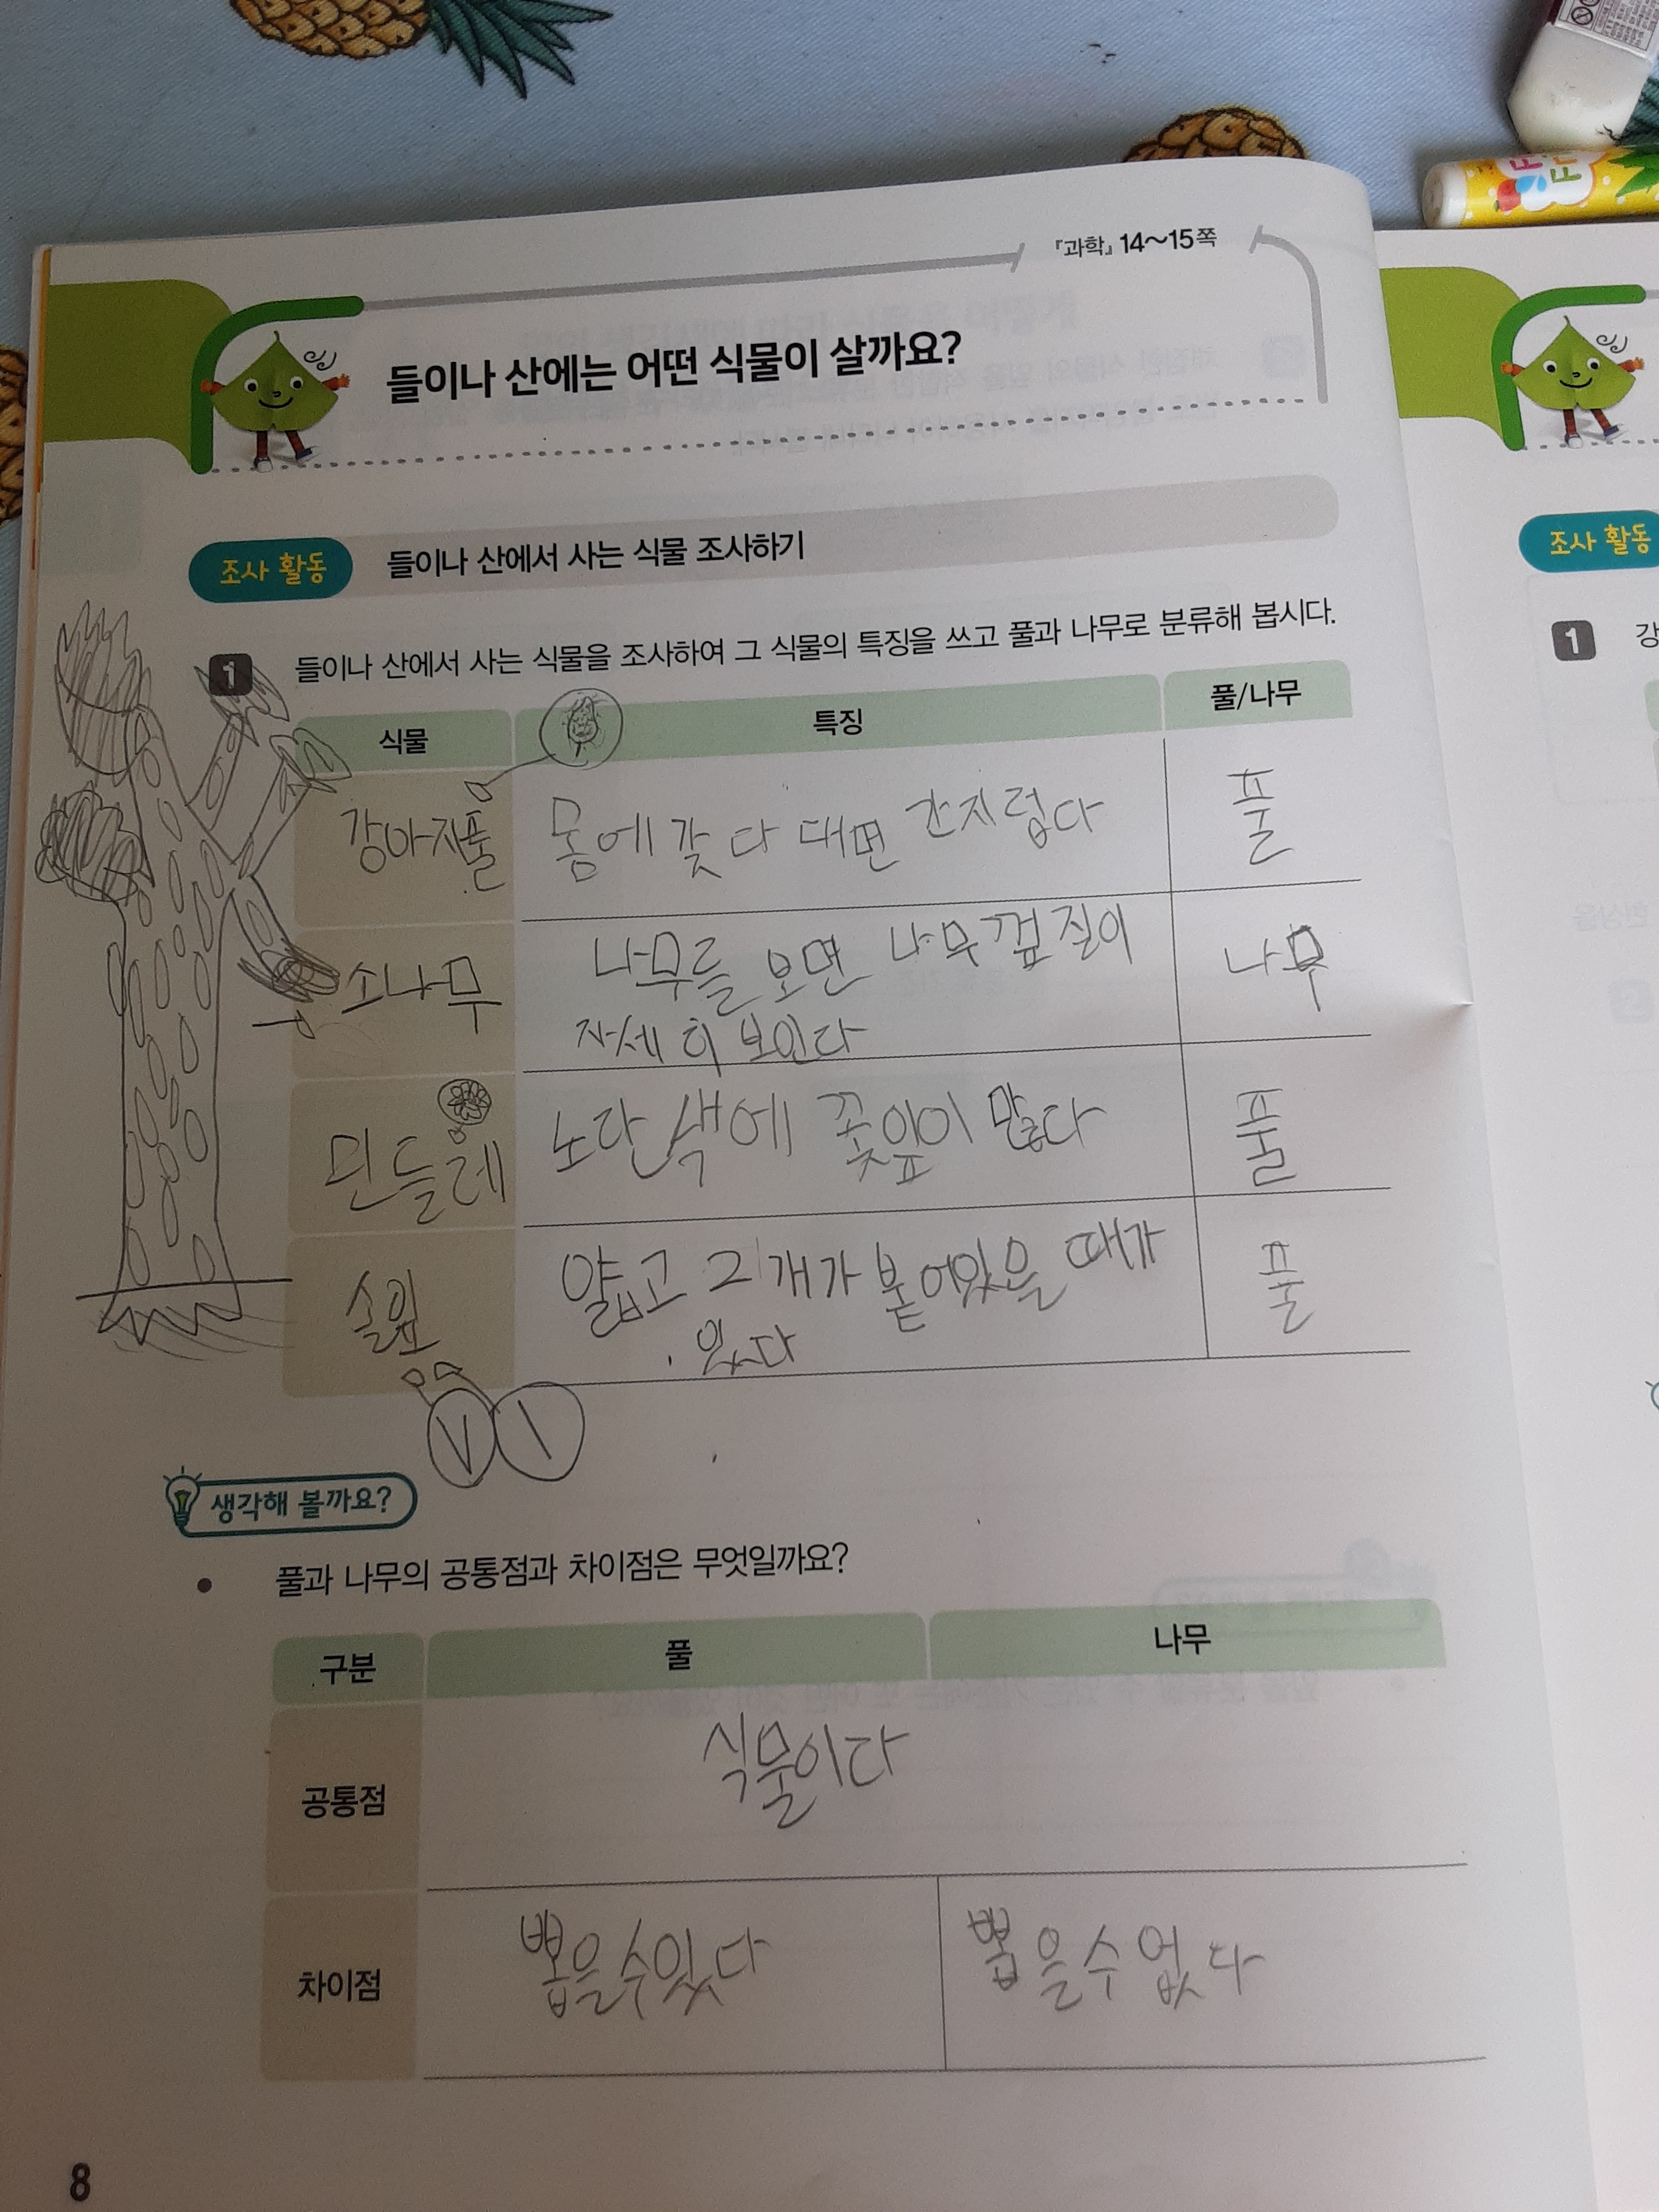 『과학』 14~15쪽
들이나 산에는 어떤 식물이 살까요?
조사 활동 들이나 산에서 사는 식물 조사하기
조사 활동
1 들이나 산에서 사는 식물을 조사하여 그 식물의 특징을 쓰고 풀과 나무로 분류해 봅시다.
1 강
식물 특징 풀/나무
강아지풀 몸에 갖다 대면 간지럽다 풀
소나무 나무를 보면 나무껖질이 나무
자세히 보인다
민들레 노란색에 꽃잎이 많다 풀
솔잎 얇고 2개가 붙어있을 때가 풀
있다
생각해 볼까요?
• 풀과 나무의 공통점과 차이점은 무엇일까요?
구분 풀 나무
공통점 식물이다
차이점 뽑을수있다 뽑을수없다
8